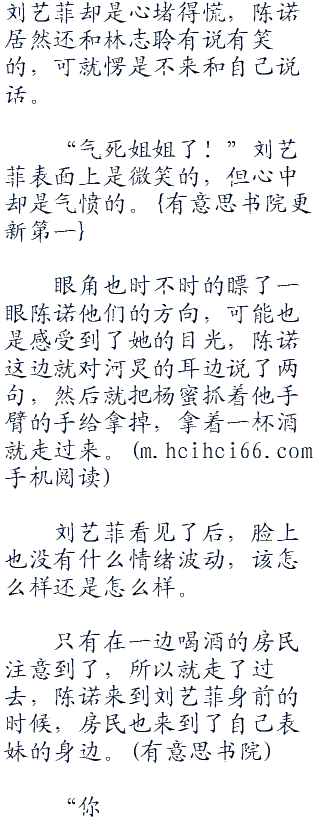 刘艺菲却是心堵得慌，陈诺
居然还和林志聆有说有笑
的，可就愣是不来和自己说
话。
“气死姐姐了！”刘艺
菲表面上是微笑的，但心中
却是气愤的。{有意思书院更
新第一}
眼角也时不时的瞟了一
眼陈诺他们的方向，可能也
是感受到了她的目光，陈诺
这边就对河炅的耳边说了两
句，然后就把杨蜜抓着他手
臂的手给拿掉，拿着一杯酒
就走过来。(m.hcihci66.com
手机阅读)
刘艺菲看见了后，脸上
也没有什么情绪波动，该怎
么样还是怎么样。
只有在一边喝酒的房民
注意到了，所以就走了过
去，陈诺来到刘艺菲身前的
时候，房民也来到了自己表
妹的身边。(有意思书院)
“你